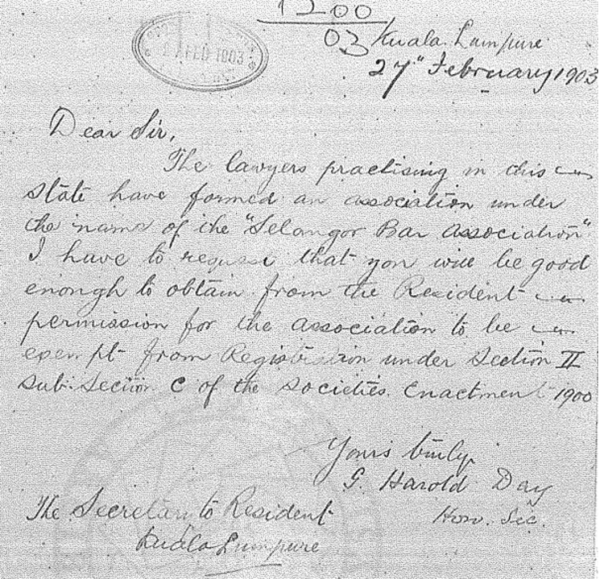 1200
03
FEB 1903
Kuala Lumpure
27" February 1903
Dear Sir,
The lawyers practising in this
State have formed an association under
the name of the "Selangor Bar Association"
I have to request that you will be good
enough to obtain from the Resident
permission for the association to be
exempt from Registration under Section II
Sub: Section C of the Societies Enactment 1900
Yours truly
G. Harold Day
Hon. Sec.
The Secretary to Resident
Kuala Lumpure